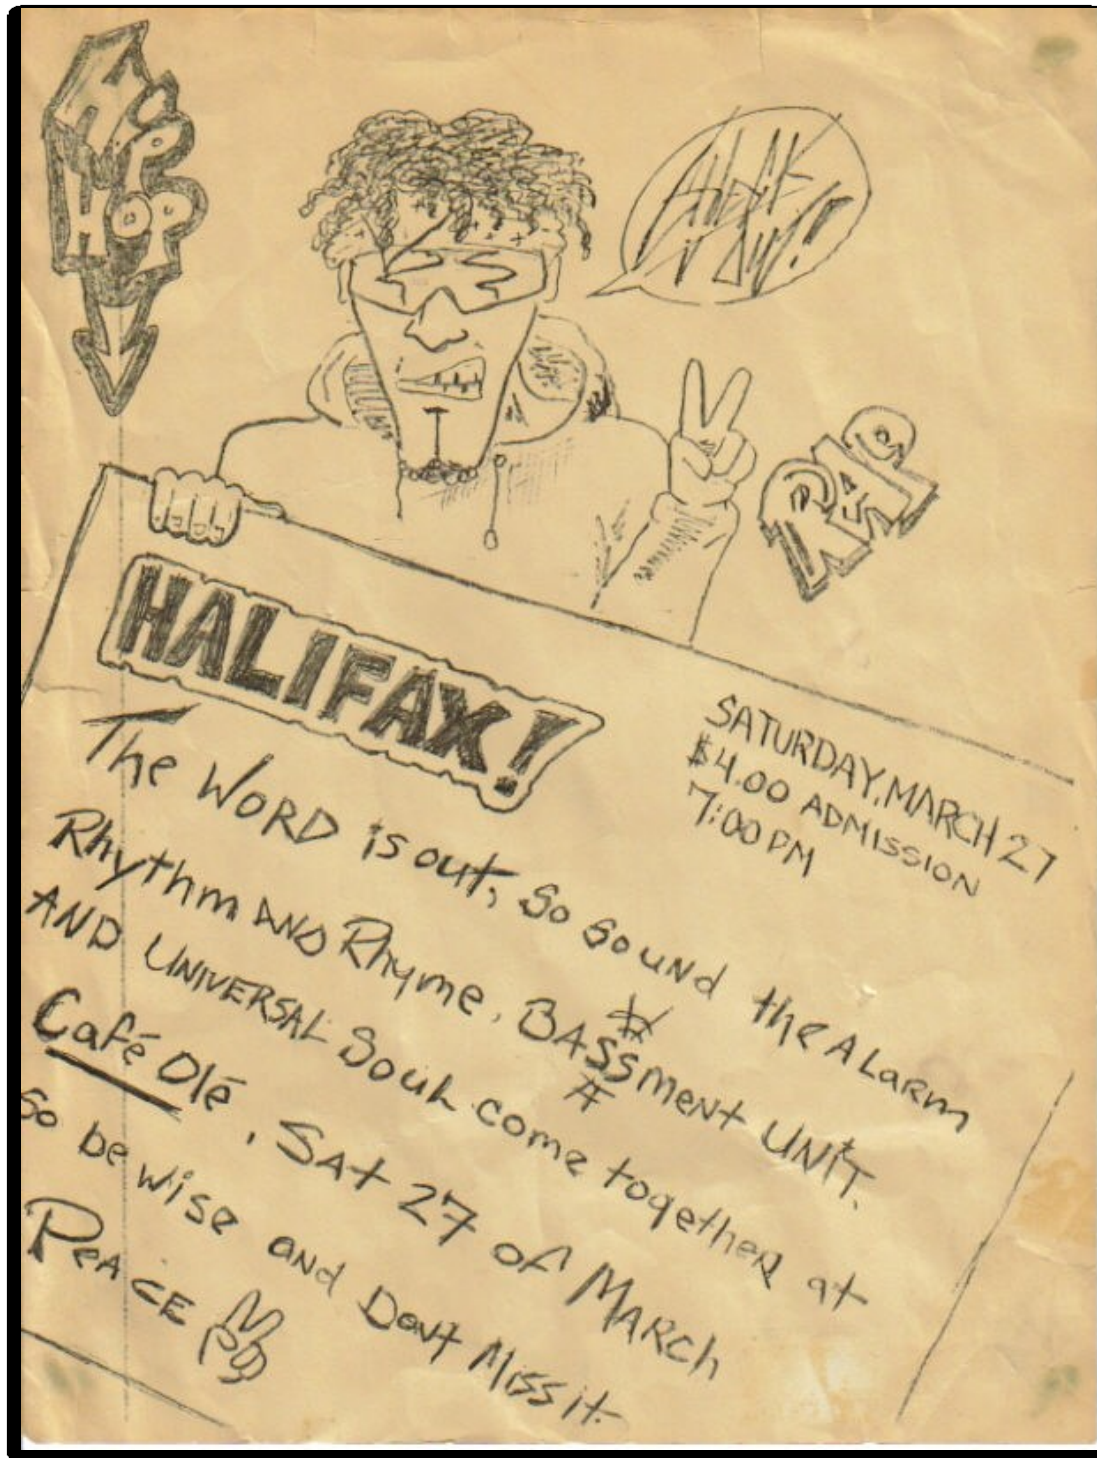 HIP
HOP
CHECK
it OUT!!
RAP
HALIFAX!
SATURDAY, MARCH 27
$4.00 ADMISSION
7:00 PM
The WORD is out, So Sound the ALarm
Rhythm AND Rhyme, BASSMent UNiT.
AND UNIVERSAL Soul come together at
Café Olé, SAt 27 of MARch
So be wise and Dont Miss it.
PeACE